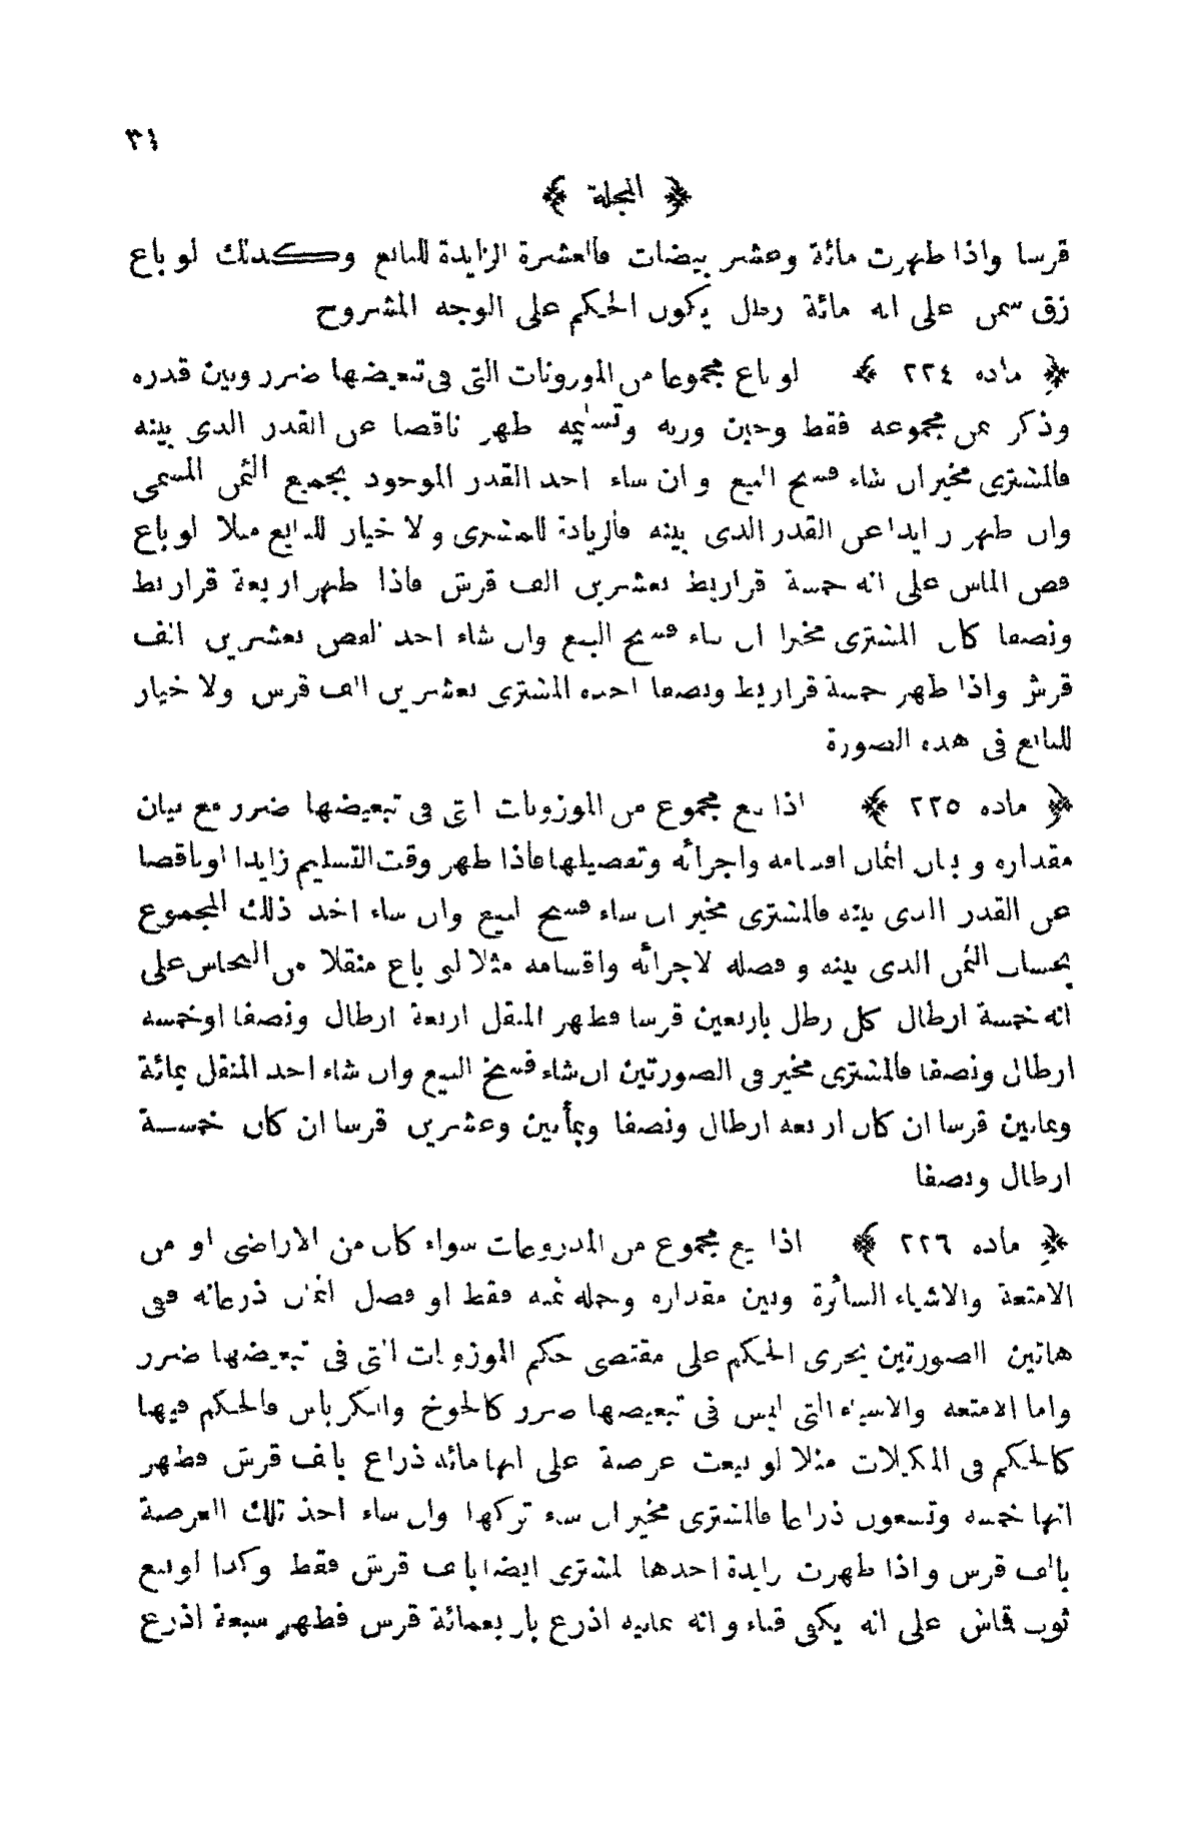 ٣٤
﴿ المجلة ﴾
قرشا واذا ظهرت مائة وعشر بيضات فالعشرة الزايدة للبائع وكذلك لو باع
زق سمن على انه مائة رطل يكون الحكم على الوجه المشروح
﴿ ماده ٢٢٤ ﴾ لو باع مجموعا من الموزونات التى فى تبعيضها ضرر وبين قدره
وذكر ثمن مجموعه فقط وحين وزنه وتسليمه ظهر ناقصا عن القدر الذى بينه
فالمشترى مخير ان شاء فسخ البيع وان شاء اخذ القدر الموجود بجميع الثمن المسمى
وان ظهر زايدا عن القدر الذى بينه فالزيادة للمشترى ولا خيار للبايع مثلا لو باع
فص الماس على انه خمسة قراريط بعشرين الف قرش فاذا ظهر اربعة قراريط
ونصفا كان المشترى مخيرا ان شاء فسخ البيع وان شاء اخذ الفص بعشرين الف
قرش واذا ظهر خمسة قراريط ونصفا اخذه المشترى بعشرين الف قرش ولا خيار
للبائع فى هذه الصورة
﴿ ماده ٢٢٥ ﴾ اذا بيع مجموع من الموزونات التى فى تبعيضها ضرر مع بيان
مقداره وبيان اثمان اقسامه واجزائه وتفصيلها فاذا ظهر وقت التسليم زايدا او ناقصا
عن القدر الذى بينه فالمشترى مخير ان شاء فسخ البيع وان شاء اخذ ذلك المجموع
بحساب الثمن الذى بينه وفصله لاجزائه واقسامه مثلا لو باع منقلا من النحاس على
انه خمسة ارطال كل رطل باربعين قرشا فظهر المنقل اربعة ارطال ونصفا او خمسه
ارطال ونصفا فالمشترى مخير فى الصورتين ان شاء فسخ البيع وان شاء اخذ المنقل بمائة
وثمانين قرشا ان كان اربعه ارطال ونصفا وبمأتين وعشرين قرشا ان كان خمسة
ارطال ونصفا
﴿ ماده ٢٢٦ ﴾ اذا بيع مجموع من المذروعات سواء كان من الاراضى او من
الامتعة والاشياء السائرة وبين مقداره وجمله ثمنه فقط او فصل اثمان ذرعانه ففى
هاتين الصورتين يجرى الحكم على مقتضى حكم الموزونات التى فى تبعيضها ضرر
واما الامتعه والاشياء التى ليس فى تبعيضها ضرر كالجوخ والكرباس فالحكم فيها
كالحكم فى المكيلات مثلا لو بيعت عرصة على انها مائه ذراع بالف قرش فظهر
انها خمسه وتسعون ذراعا فالمشترى مخير ان شاء تركها وان شاء اخذ تلك العرصة
بالف قرش واذا ظهرت زايدة اخذها المشترى ايضا بالف قرش فقط وكذا لو بيع
ثوب قماش على انه يكفى قباء وانه ثمانيه اذرع باربعمائة قرش فظهر سبعة اذرع